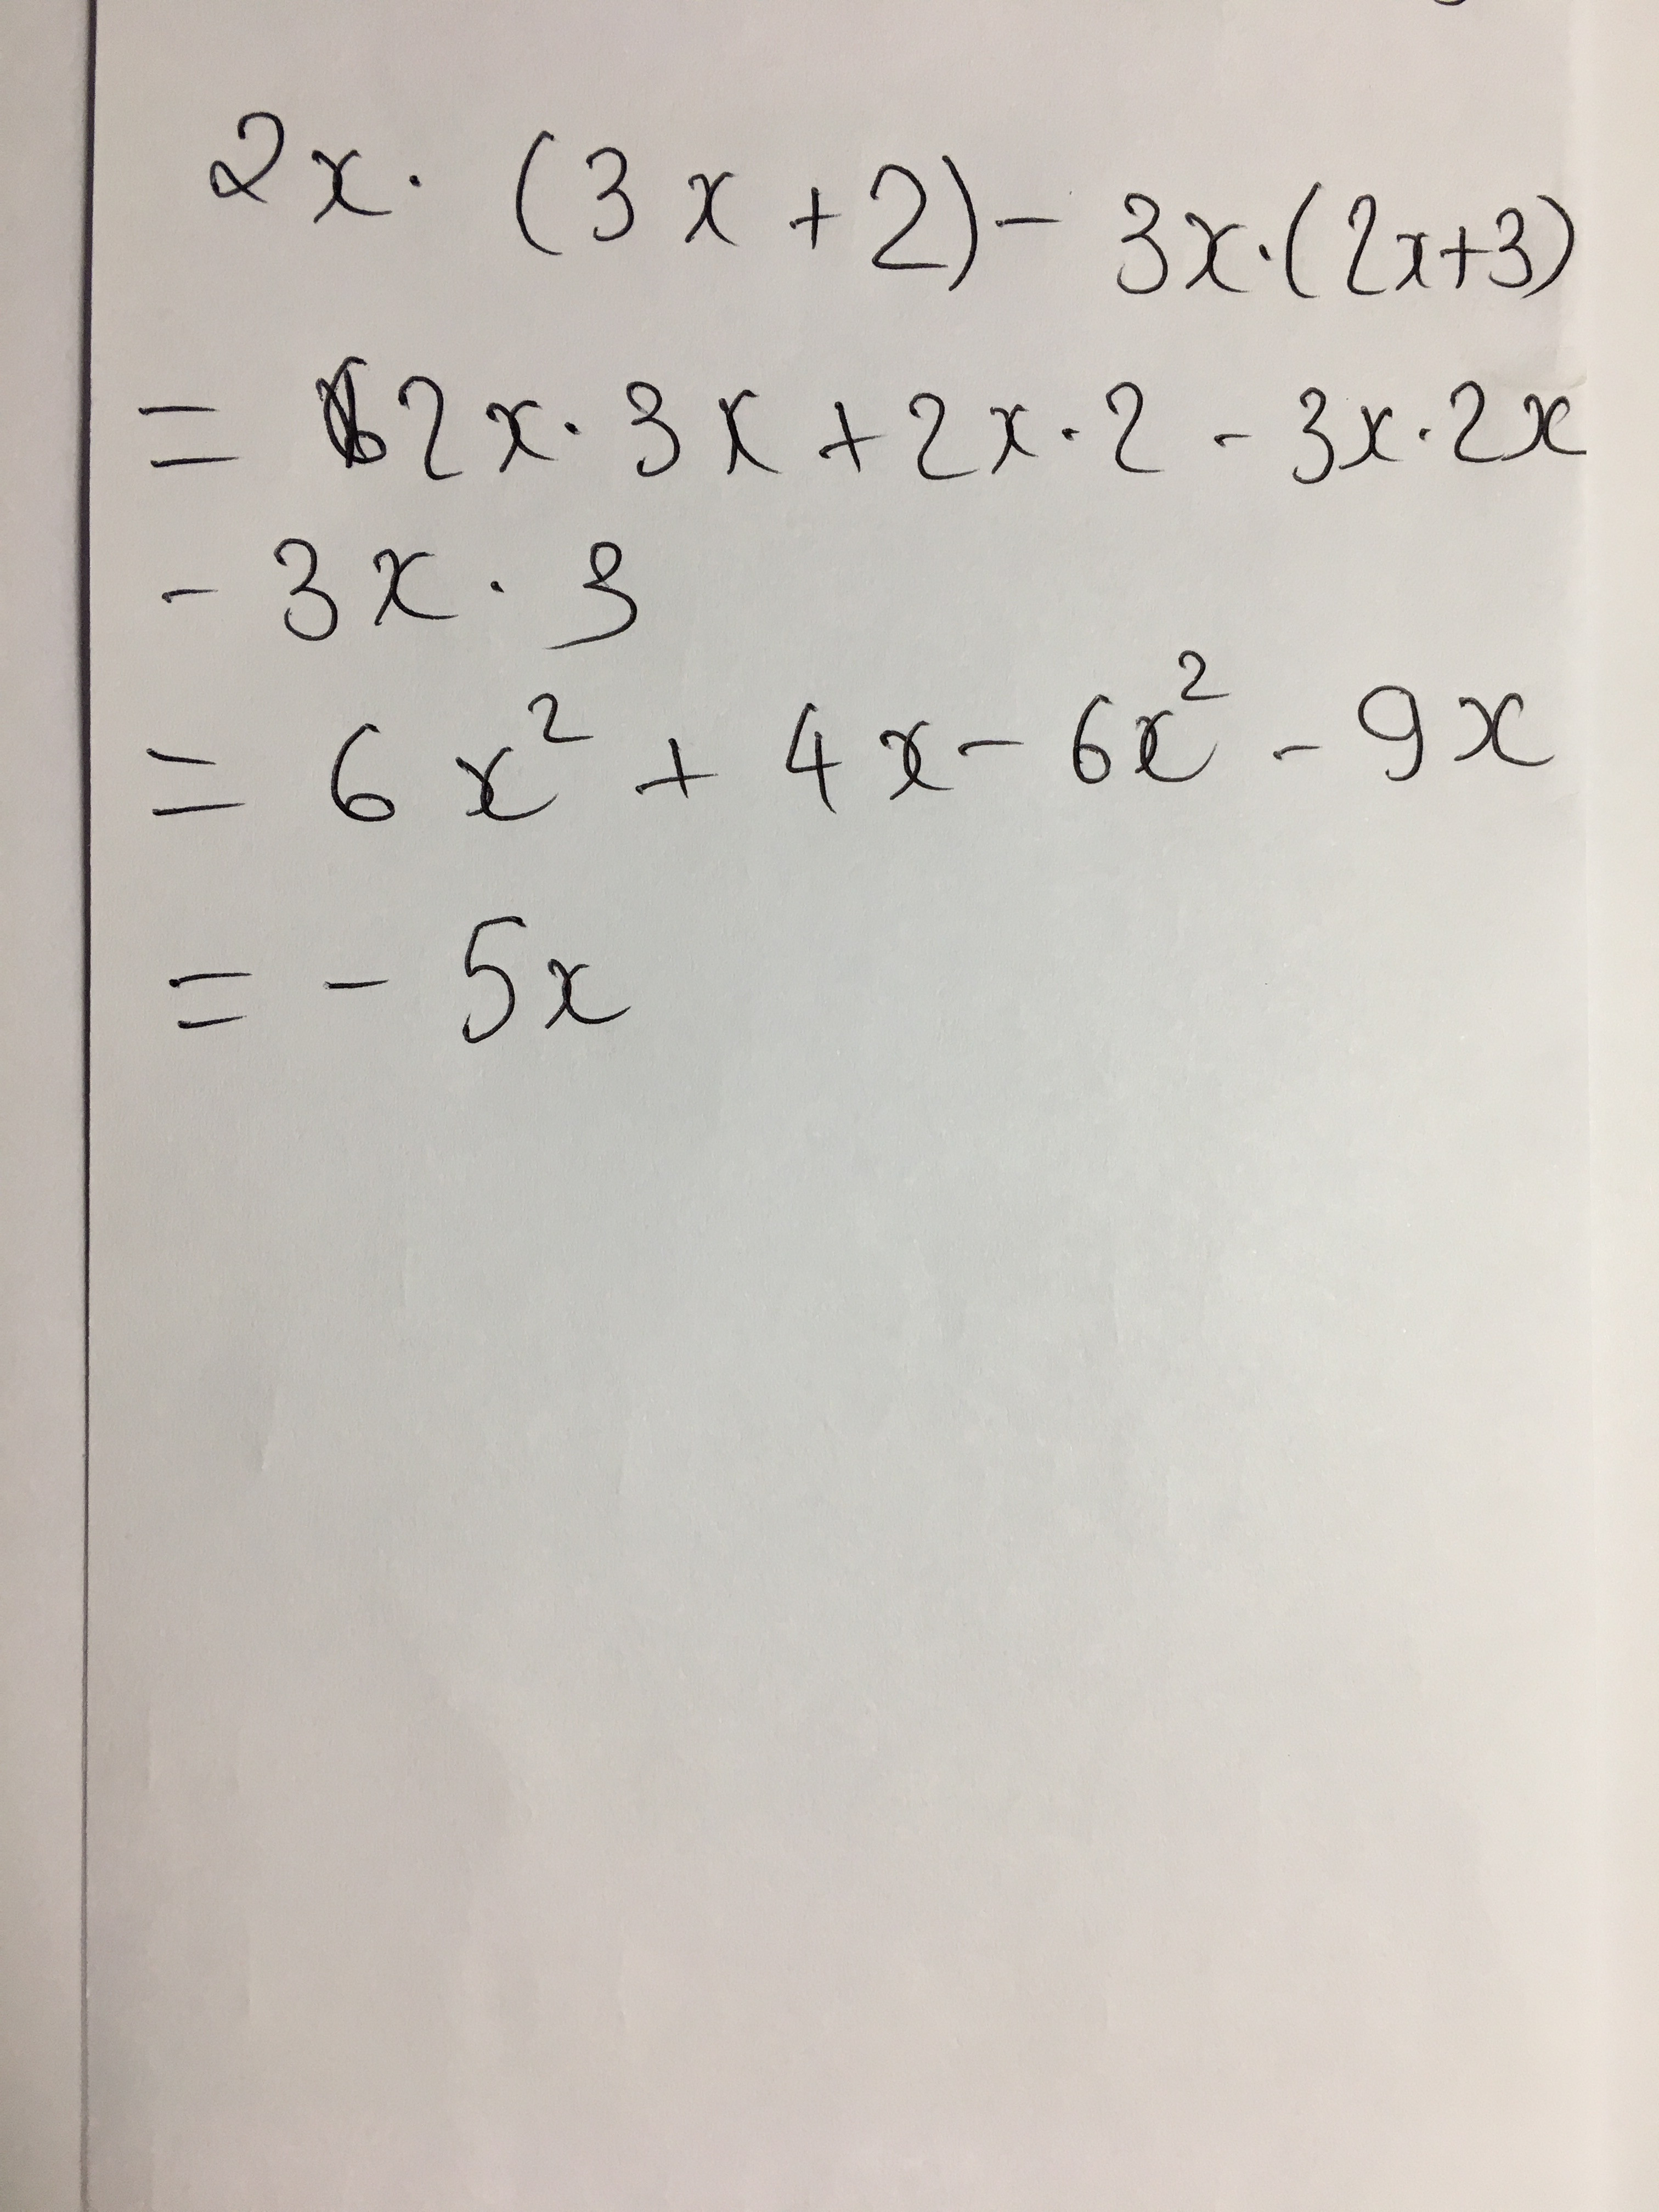 2x · (3x + 2) - 3x · (2x + 3)
= 2x · 3x + 2x · 2 - 3x · 2x
- 3x · 3
= 6x² + 4x - 6x² - 9x
= - 5x